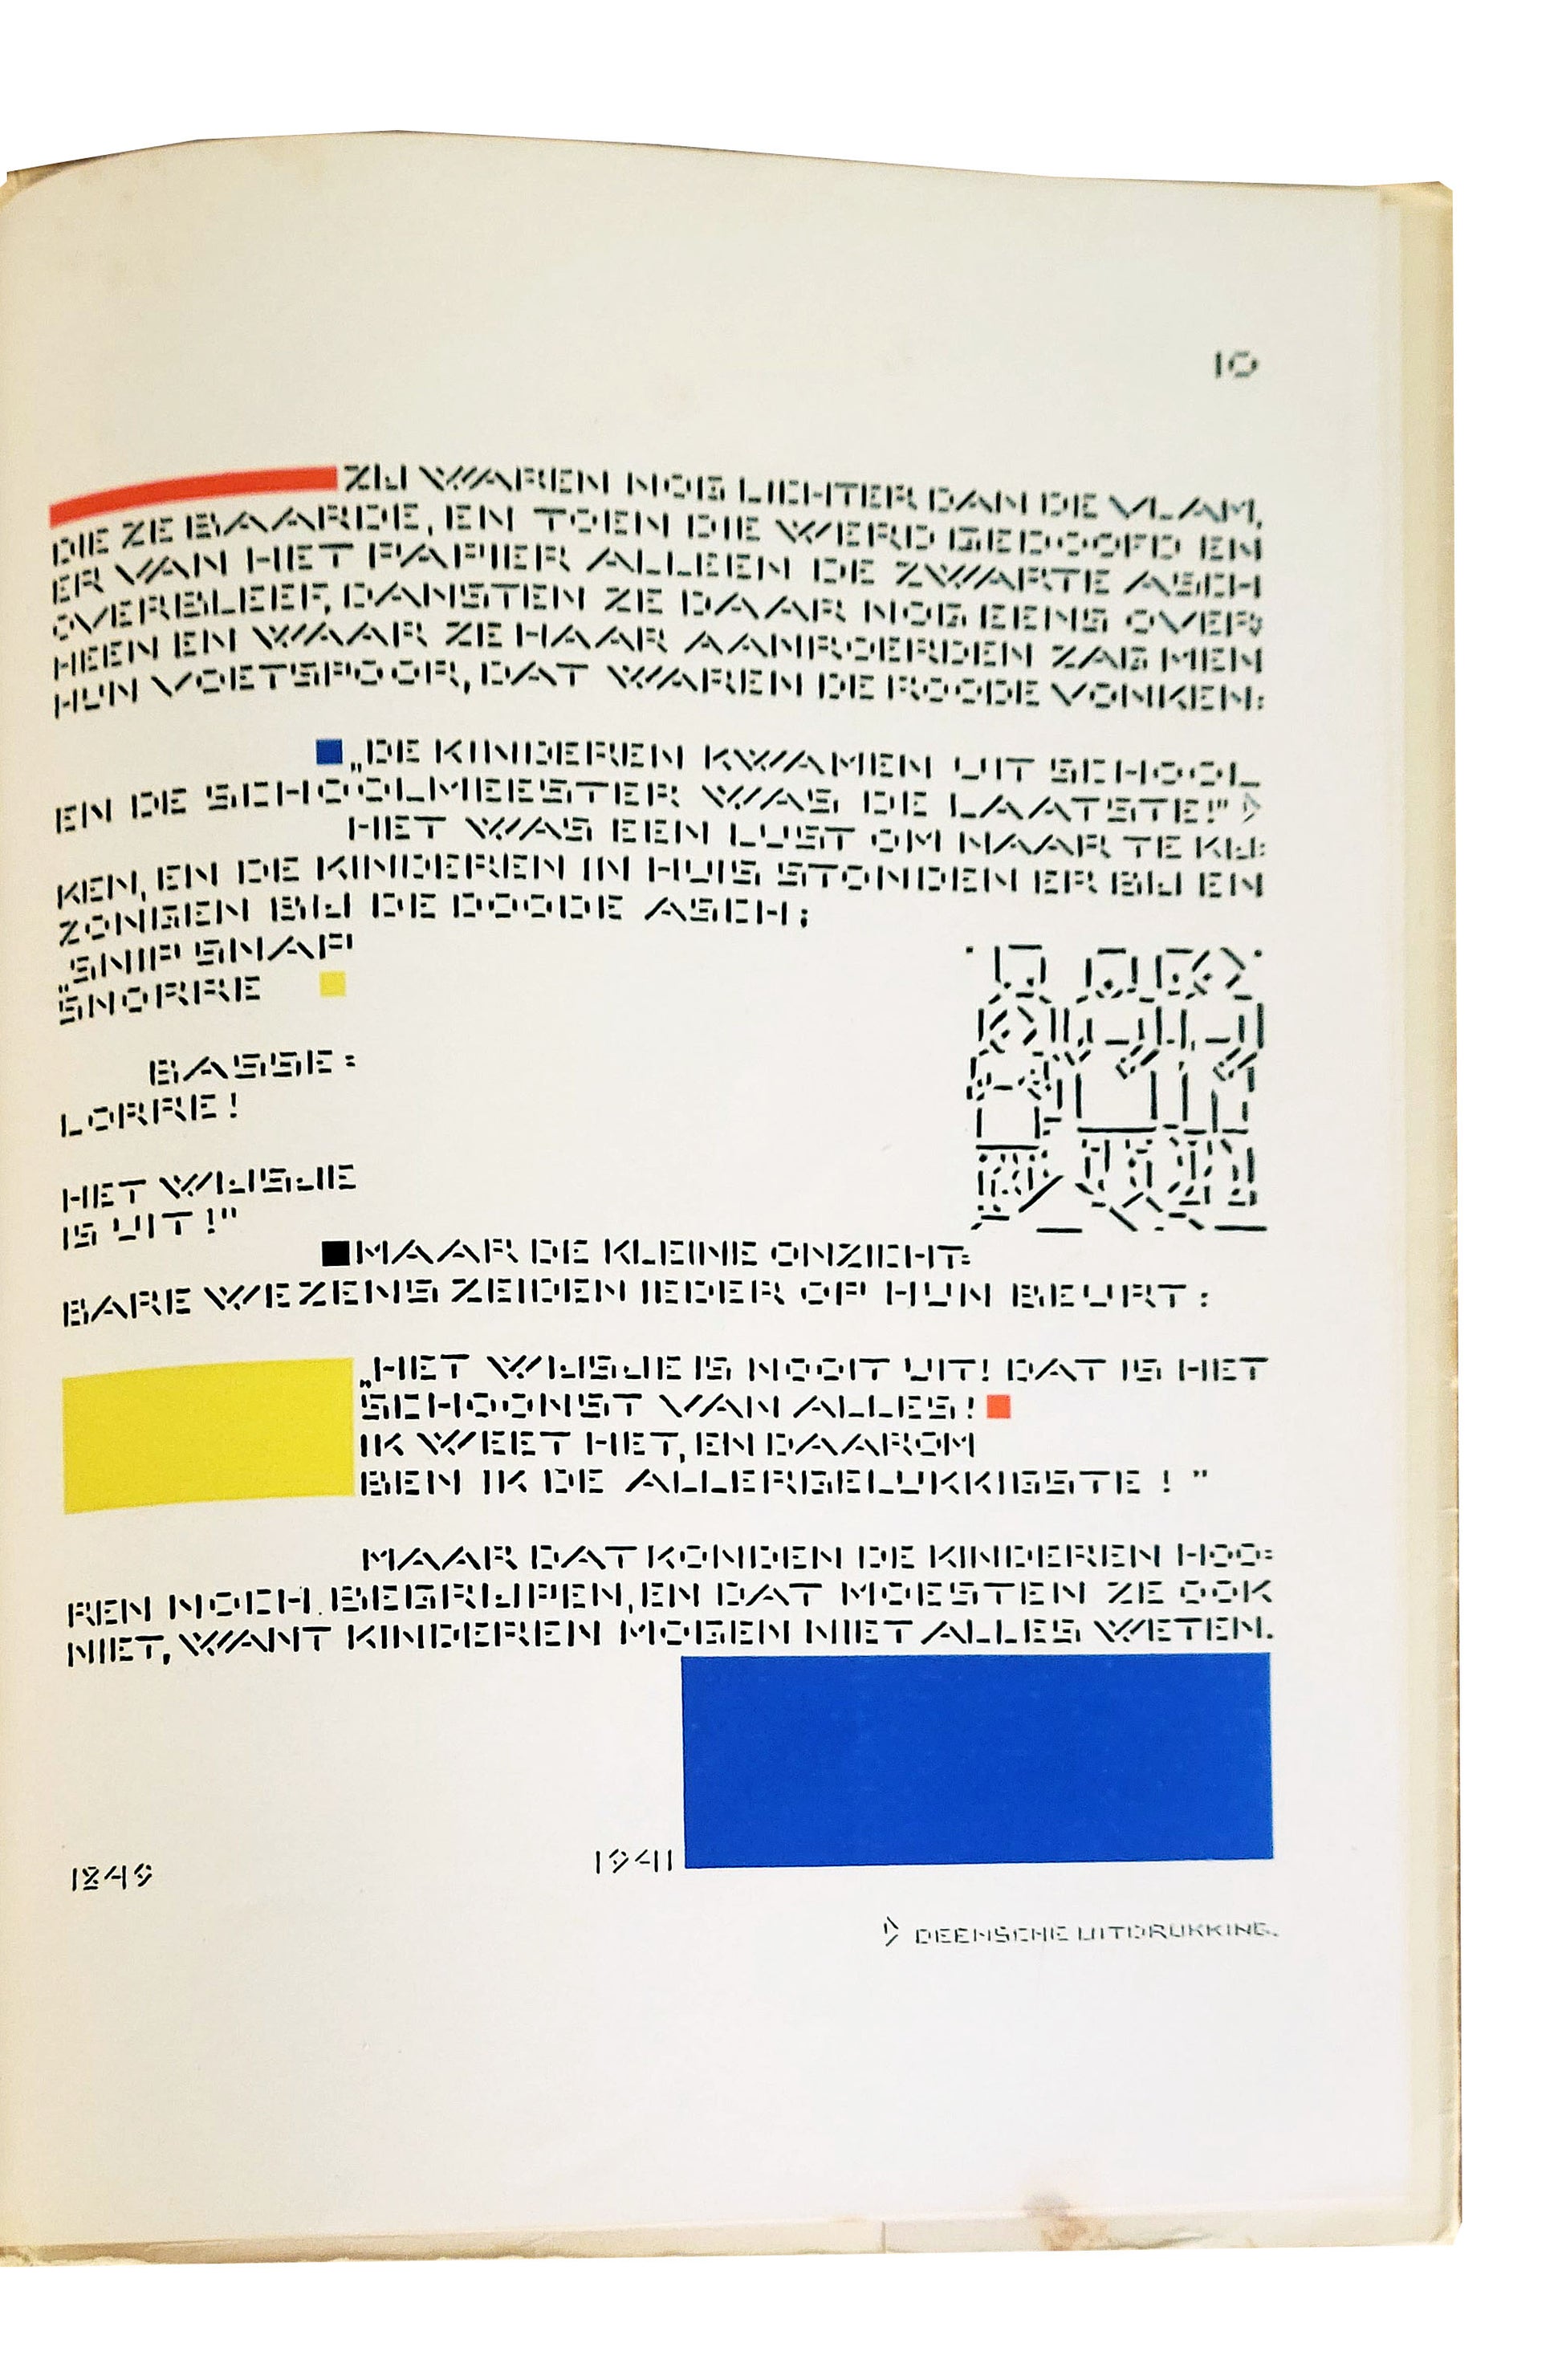 10
ZIJ WAREN NOG LICHTER DAN DE VLAM,
DIE ZE BAARDE, EN TOEN DIE WERD GEDOOFD EN
ER VAN HET PAPIER ALLEEN DE ZWARTE ASCH
OVERBLEEF, DANSTEN ZE DAAR NOG EENS OVER=
HEEN EN WAAR ZE HAAR AANROERDEN ZAG MEN
HUN VOETSPOOR, DAT WAREN DE ROODE VONKEN:
„DE KINDEREN KWAMEN UIT SCHOOL
EN DE SCHOOLMEESTER WAS DE LAATSTE!" 1)
HET WAS EEN LUST OM NAAR TE KIJ=
KEN, EN DE KINDEREN IN HUIS STONDEN ER BIJ EN
ZONGEN BIJ DE DOODE ASCH;
„SNIP SNAP
SNORRE
BASSE=
LORRE!
HET WIJSJE
IS UIT!"
MAAR DE KLEINE ONZICHT=
BARE WEZENS ZEIDEN IEDER OP HUN BEURT:
„HET WIJSJE IS NOOIT UIT! DAT IS HET
SCHOONST VAN ALLES!
IK WEET HET, EN DAAROM
BEN IK DE ALLERGELUKKIGSTE! "
MAAR DAT KONDEN DE KINDEREN HOO=
REN NOCH BEGRIJPEN, EN DAT MOESTEN ZE OOK
NIET, WANT KINDEREN MOGEN NIET ALLES WETEN.
1849
1941
1) DEENSCHE UITDRUKKING.